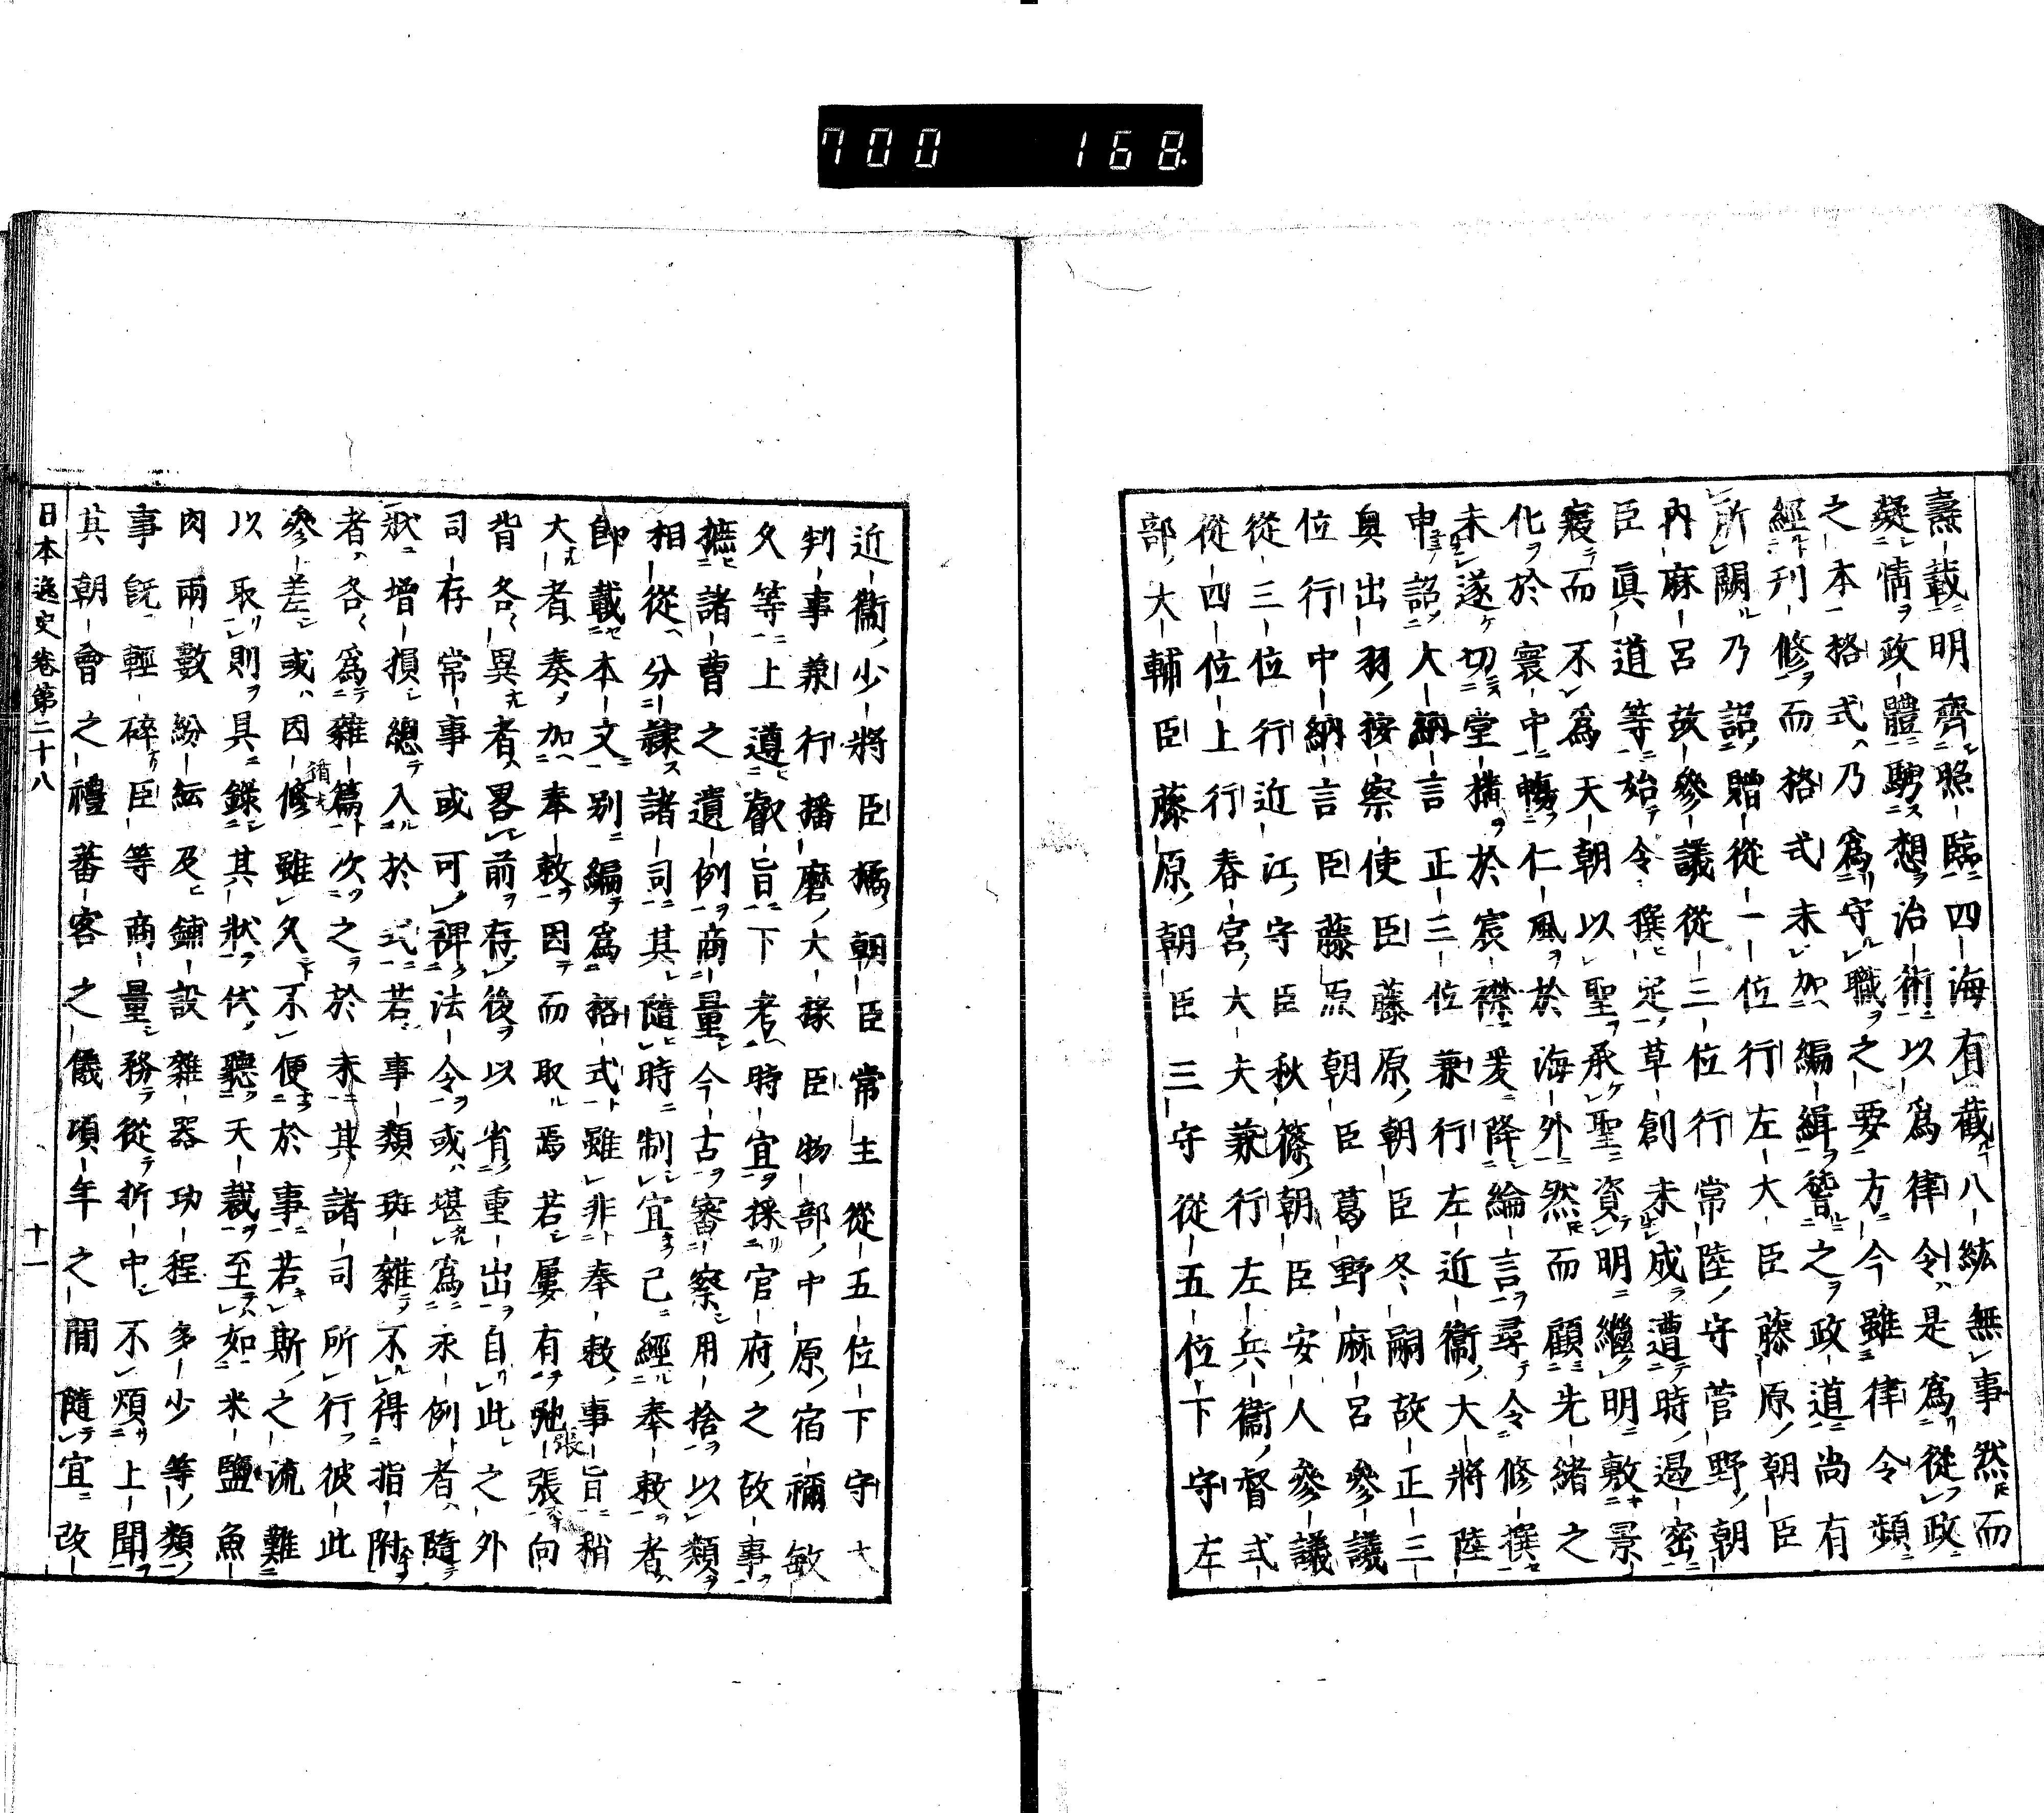 700 168
燾載明齊照臨四海有截八紘無事然而
凝情政體騁想治術以爲律令是爲從政
之本格式乃爲守職之要方今雖律令頻
經刊修而格式未加編緝瞽之政道尚有
所闕乃詔贈從一位行左大臣藤原朝臣
内麻呂故參議從三位行常陸守菅野朝
臣眞道等始令撰定草創未成遭時遏密
寢而不爲天朝以聖承聖資明繼明敷景
化於寰中暢仁風於海外然而顧先緒之
未遂切堂搆於宸襟爰降綸言尋令修撰
申詔大納言正三位兼行左近衞大將陸
奥出羽按察使臣藤原朝臣冬嗣故正三
位行中納言臣藤原朝臣葛野麻呂參議
從三位行近江守臣秋篠朝臣安人參議
從四位上行春宮大夫兼行左兵衞督式
部大輔臣藤原朝臣三守從五位下守左
近衞少將臣橘朝臣常主從五位下守大
判事兼行播磨大掾臣物部中原宿禰敏
久等上遵叡旨下考時宜採官府之故事
摭諸曹之遺例商量今古審察用捨以類
相從分隸諸司其隨時制宜已經奉敕者
即載本文別編爲格式雖非奉敕事旨稍
大者奏加奉敕因而取焉若屢有弛張向
背各異者畧前存後以省重出自此之外
司存常事或可裨法令或堪爲永例者隨
狀増損總入於式若事類斑雜不得指附
者各爲雜篇次之於未其諸司所行彼此
參差或因修雖久不便於事若斯之流難
以取則具錄其狀伏聽天裁至如米鹽魚
肉兩數紛紜及鋪設雜器功程多少等類
事既輕碎臣等商量務從折中不煩上聞
其朝會之禮蕃客之儀頃年之間隨宜改
日本逸史卷第二十八 十一